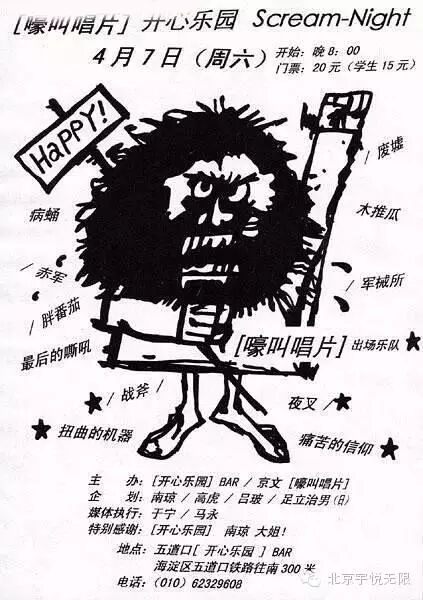 [嚎叫唱片] 开心乐园 Scream-Night
4月7日（周六）
开始：晚8：00
门票：20元（学生15元）
HaPPY!
/ 废墟
病蛹
木推瓜
/ 赤军
/ 军械所
/ 胖番茄
[嚎叫唱片] 出场乐队 ★
最后的嘶吼
★ / 战斧 /
夜叉 / ★
★ 扭曲的机器
痛苦的信仰 ★
主 办：[开心乐园] BAR / 京文 [嚎叫唱片]
企 划：南琼 / 高虎 / 吕玻 / 足立治男(日)
媒体执行：于宁 / 马永
特别感谢：[开心乐园] 南琼 大姐！
地点：五道口[ 开心乐园 ] BAR
海淀区五道口铁路往南300米
电话：(010) 62329608
北京宇悦无限